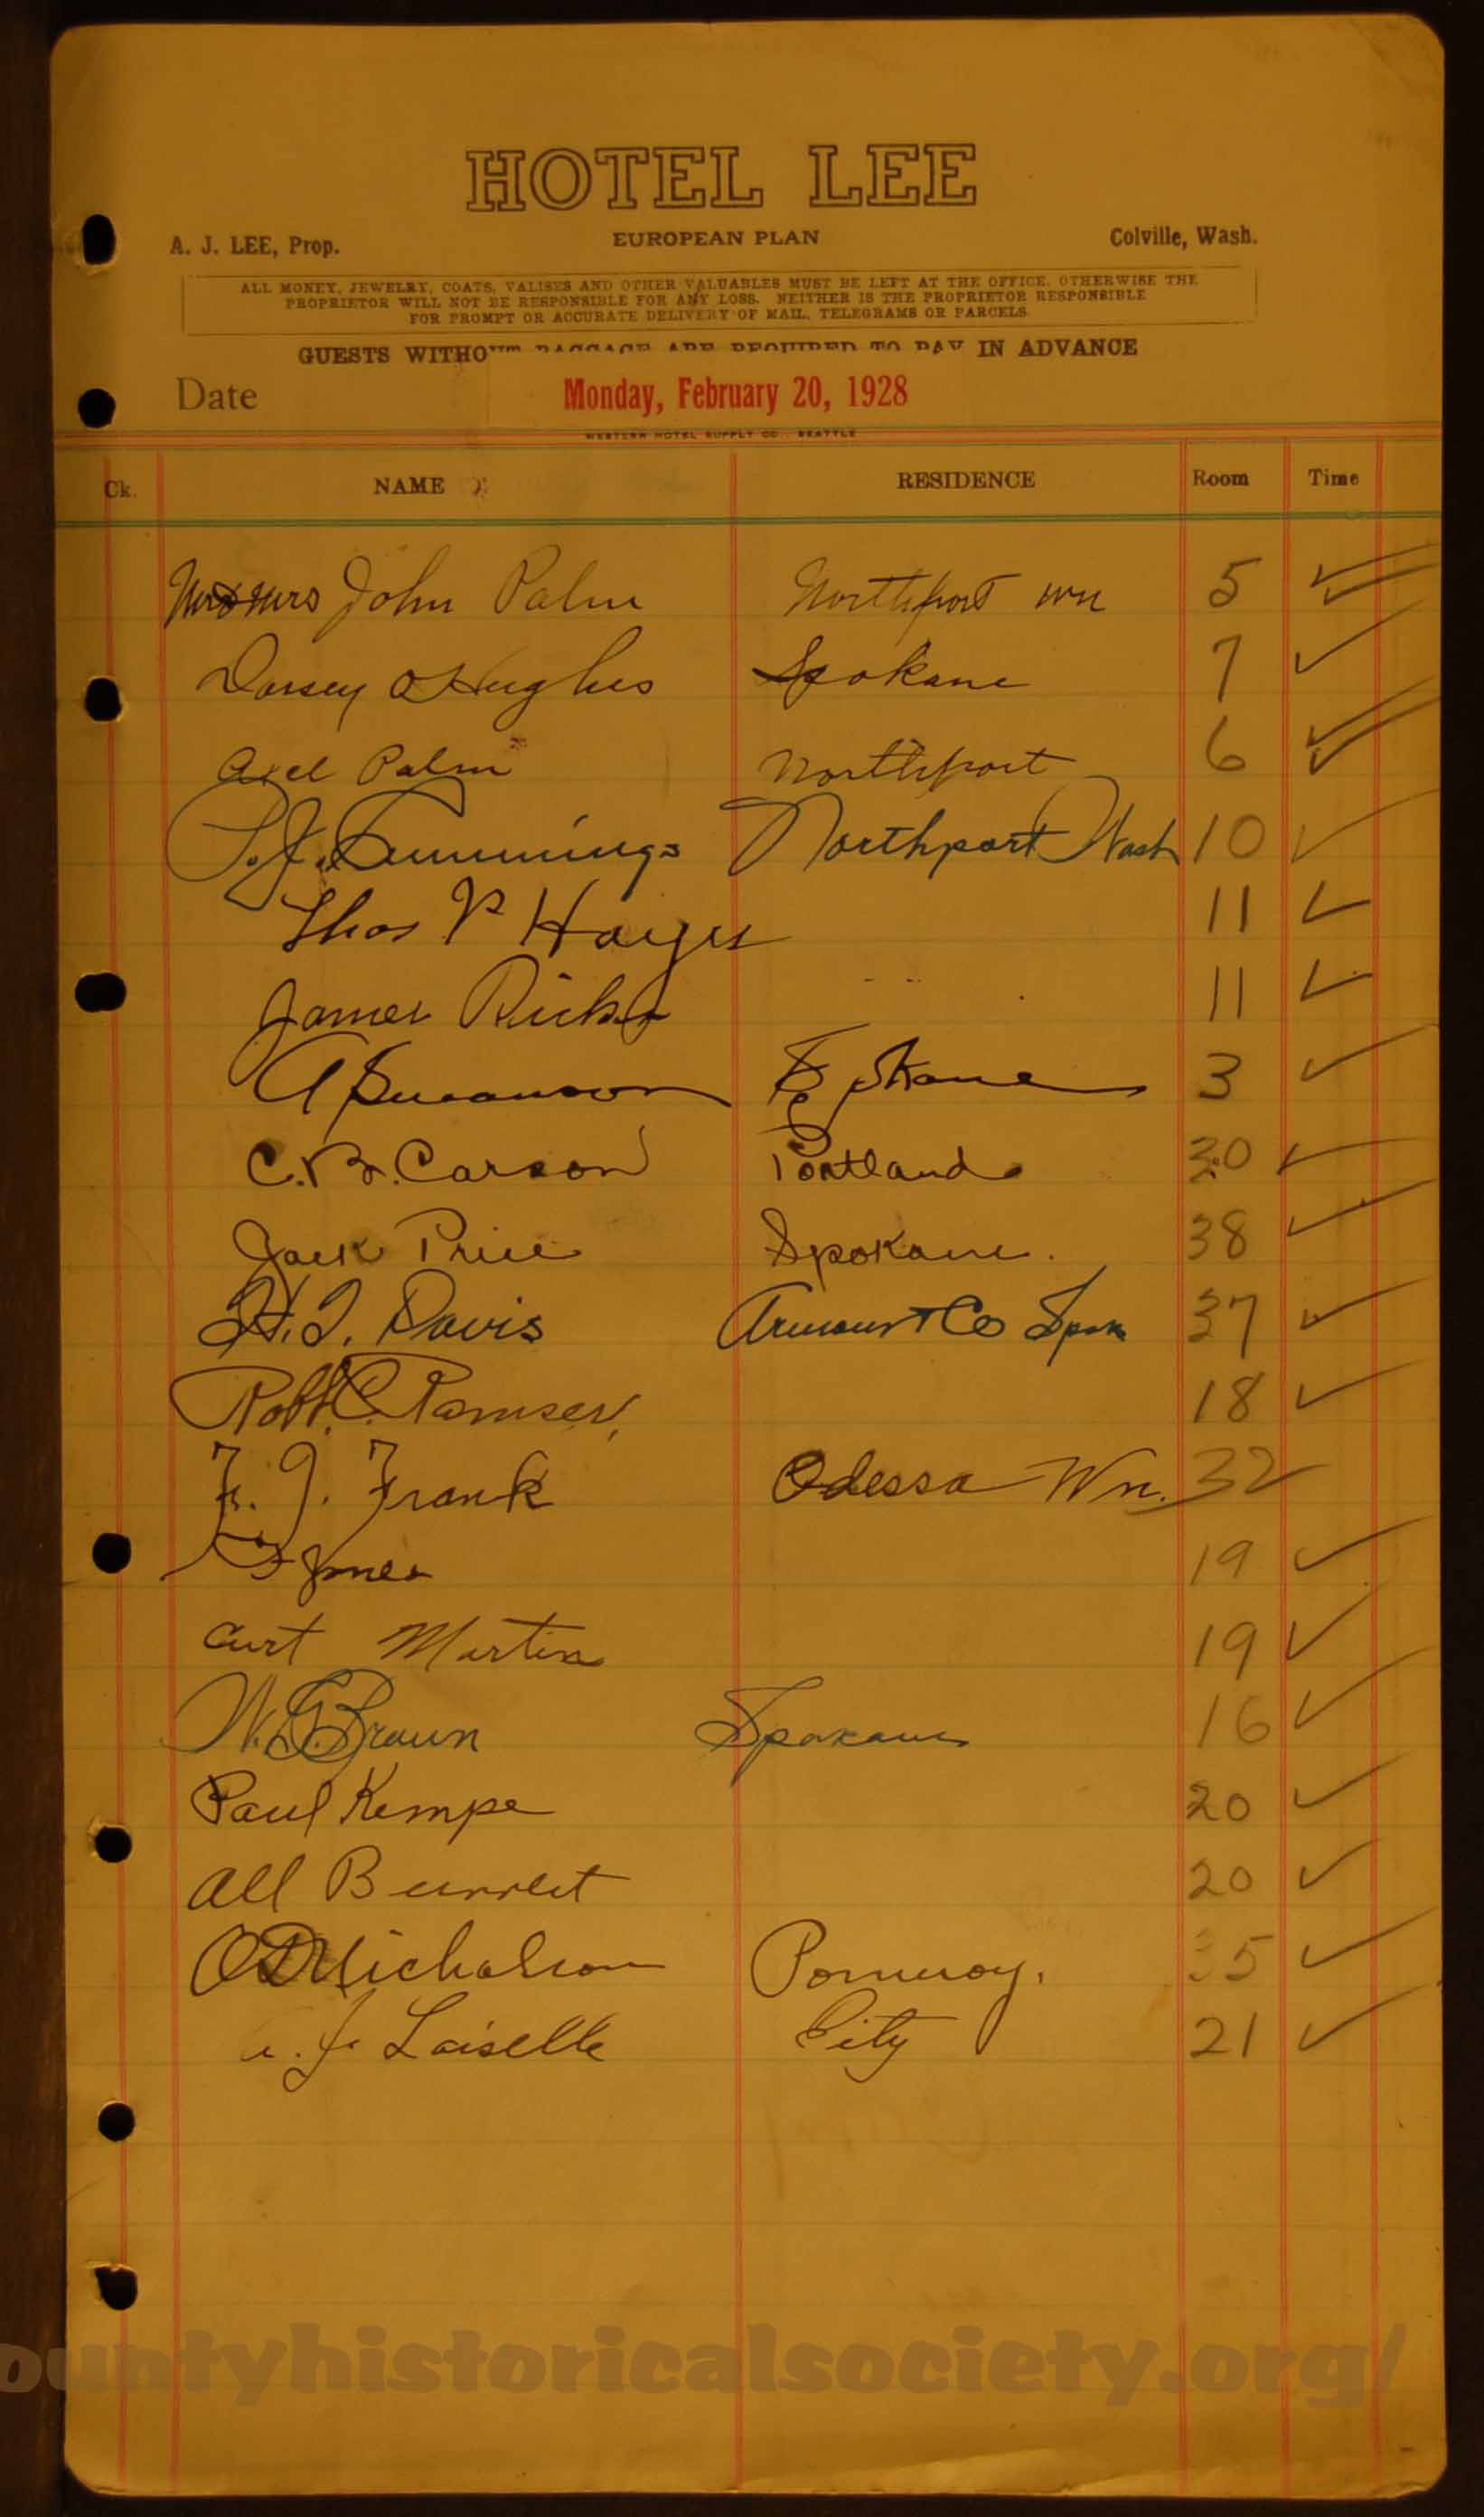 HOTEL LEE
A. J. LEE, Prop. EUROPEAN PLAN Colville, Wash.
ALL MONEY, JEWELRY, COATS, VALISES AND OTHER VALUABLES MUST BE LEFT AT THE OFFICE, OTHERWISE THE
PROPRIETOR WILL NOT BE RESPONSIBLE FOR ANY LOSS. NEITHER IS THE PROPRIETOR RESPONSIBLE
FOR PROMPT OR ACCURATE DELIVERY OF MAIL, TELEGRAMS OR PARCELS
GUESTS WITHOUT BAGGAGE ARE REQUIRED TO PAY IN ADVANCE
Date Monday, February 20, 1928
WESTERN HOTEL SUPPLY CO. SEATTLE
Ck. NAME RESIDENCE Room Time
Mr & Mrs John Palm Northport Wn 5
Dorsey Hughes Spokane 7
Axel Palm Northport 6
Cummings Northport Wash 10
Thos P Hayes 11
James Ricks 11
A Swanson Spokane 3
C.B. Carson Portland 30
Jack Price Spokane. 38
Davis Armour & Co Spok 37
Robt. C. Ramsey, 18
F. J. Frank Odessa Wn. 32
Jones 19
Curt Martin 19
W.G. Braun Spokane 16
Paul Kempe 20
All 20
Nicholson Pomeroy. 35
J. Loiselle City 21
ountyhistoricalsociety.org/